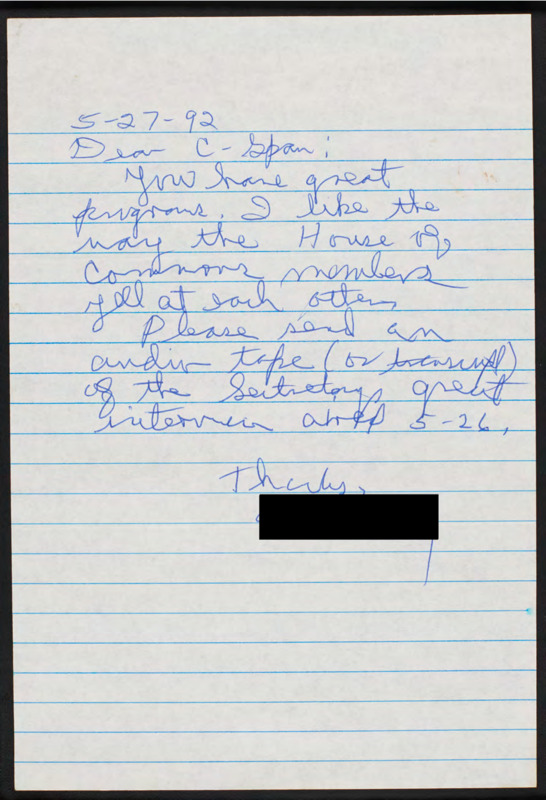 5-27-92
Dear C-Span:
You have great
programs. I like the
way the House of
Commons members
yell at each other.
Please send an
audio tape (or transcript)
of the great
interview 5-26.
Thanks,